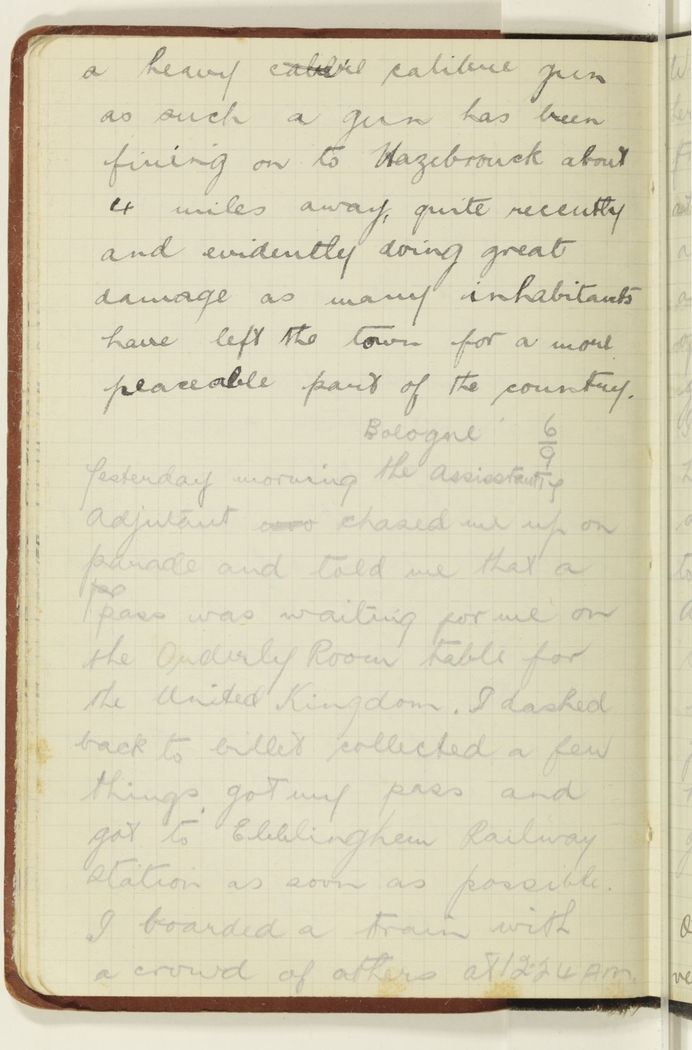 a heavy calibre calibre gun
as such a gun has been
firing on to Hazebrouck about
4 miles away, quite recently
and evidently doing great
damage as many inhabitants
have left the town for a more
peaceable part of the country.
Bologne 6/9/17
Yesterday morning the assisstant
Adjutant was chased me up on
parade and told me that a
pass was waiting for me on
the Orderly Room table for
the United Kingdom. I dashed
back to billet collected a few
things, got my pass and
got to Ebblinghem Railway
Station as soon as possible.
I boarded a train with
a crowd of others at 12.24 A.M.